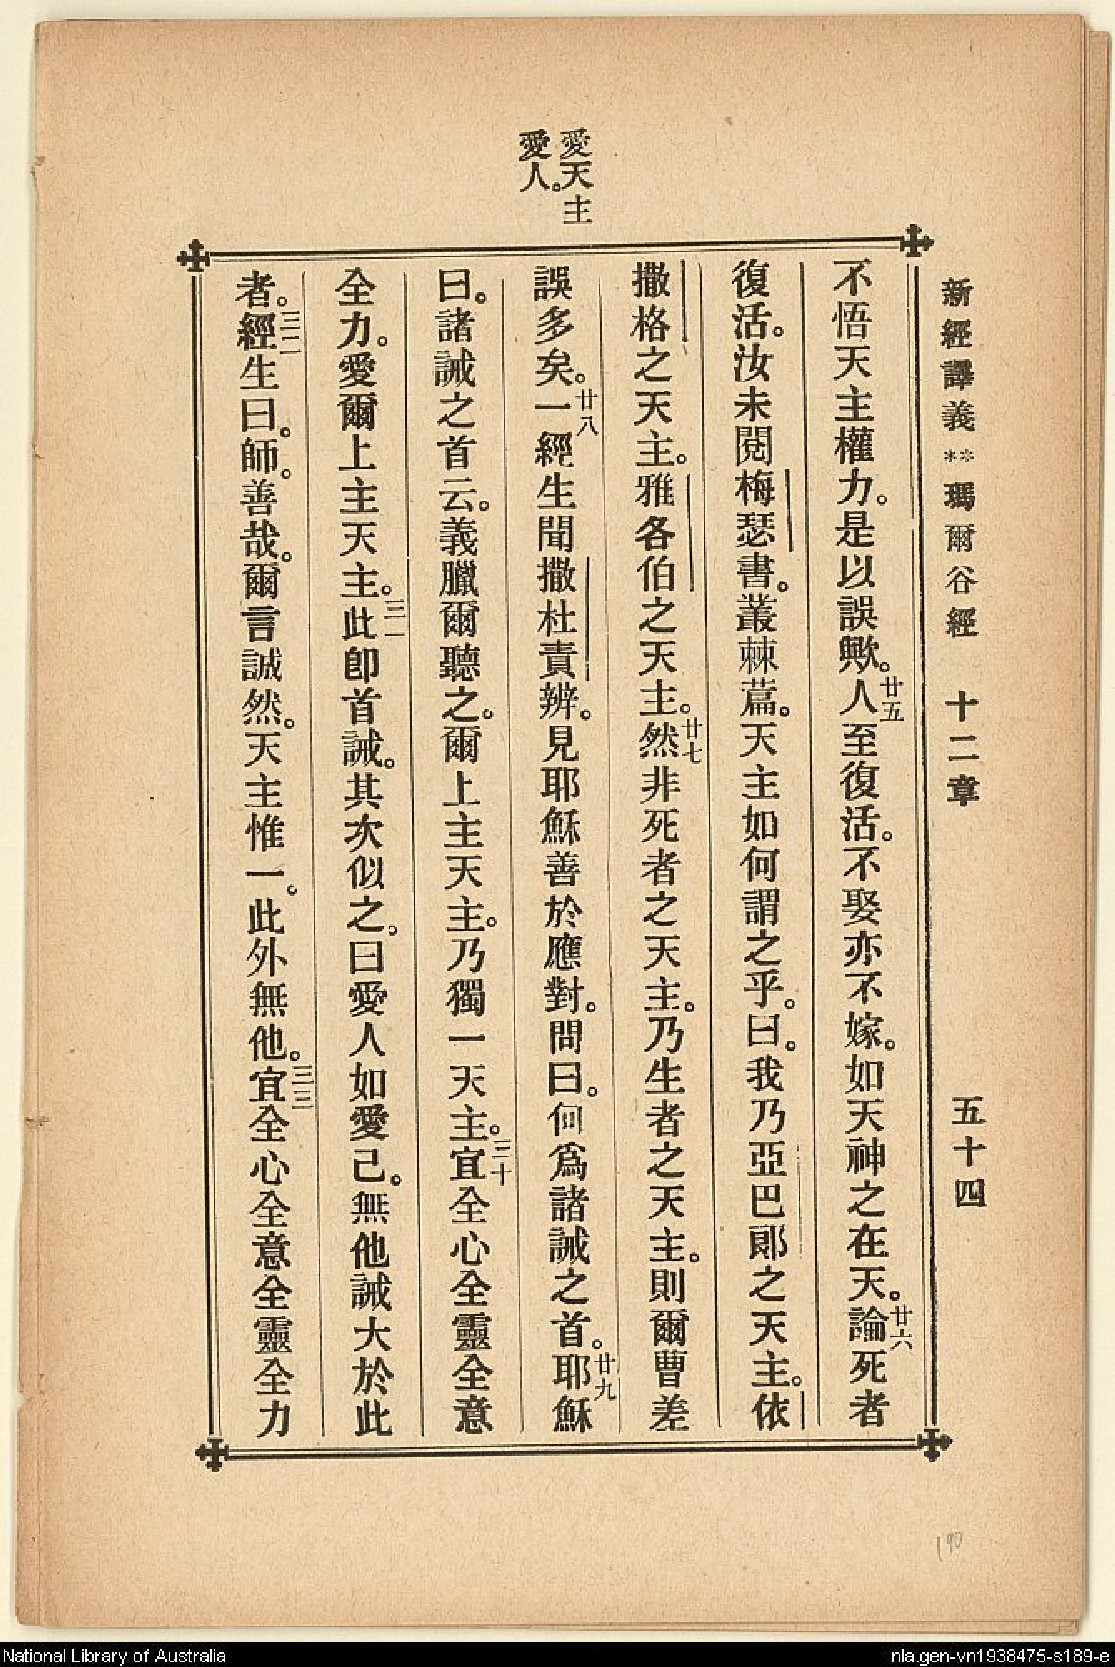 新經譯義**瑪爾谷經 十二章 五十四
愛天主
愛人。
不悟天主權力。是以誤歟。廿五人至復活。不娶亦不嫁。如天神之在天。廿六論死者
復活。汝未閱梅瑟書。叢棘藟。天主如何謂之乎。曰。我乃亞巴郎之天主。依
撒格之天主。雅各伯之天主。廿七然非死者之天主。乃生者之天主。則爾曹差
誤多矣。廿八一經生聞撒杜責辨。見耶穌善於應對。問曰。何爲諸誡之首。廿九耶穌
曰。諸誡之首云。義臘爾聽之。爾上主天主。乃獨一天主。三十宜全心全靈全意
全力。愛爾上主天主。三一此卽首誡。其次似之。曰愛人如愛己。無他誡大於此
者。三二經生曰。師。善哉。爾言誠然。天主惟一。此外無他。三三宜全心全意全靈全力
190
National Library of Australia
nla.gen-vn1938475-s189-e